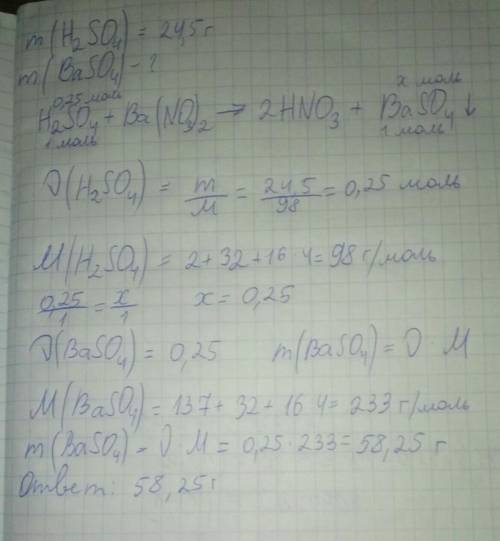 m(H₂SO₄) = 24,5 г
m(BaSO₄) - ?
0,25 моль x моль
H₂SO₄ + Ba(NO₃)₂ → 2HNO₃ + BaSO₄ ↓
1 моль 1 моль
𝜈(H₂SO₄) = m/M = 24,5/98 = 0,25 моль
M(H₂SO₄) = 2 + 32 + 16 · 4 = 98 г/моль
0,25/1 = x/1 x = 0,25
𝜈(BaSO₄) = 0,25 m(BaSO₄) = 𝜈 · M
M(BaSO₄) = 137 + 32 + 16 · 4 = 233 г/моль
m(BaSO₄) = 𝜈 · M = 0,25 · 233 = 58,25 г
Ответ: 58,25 г